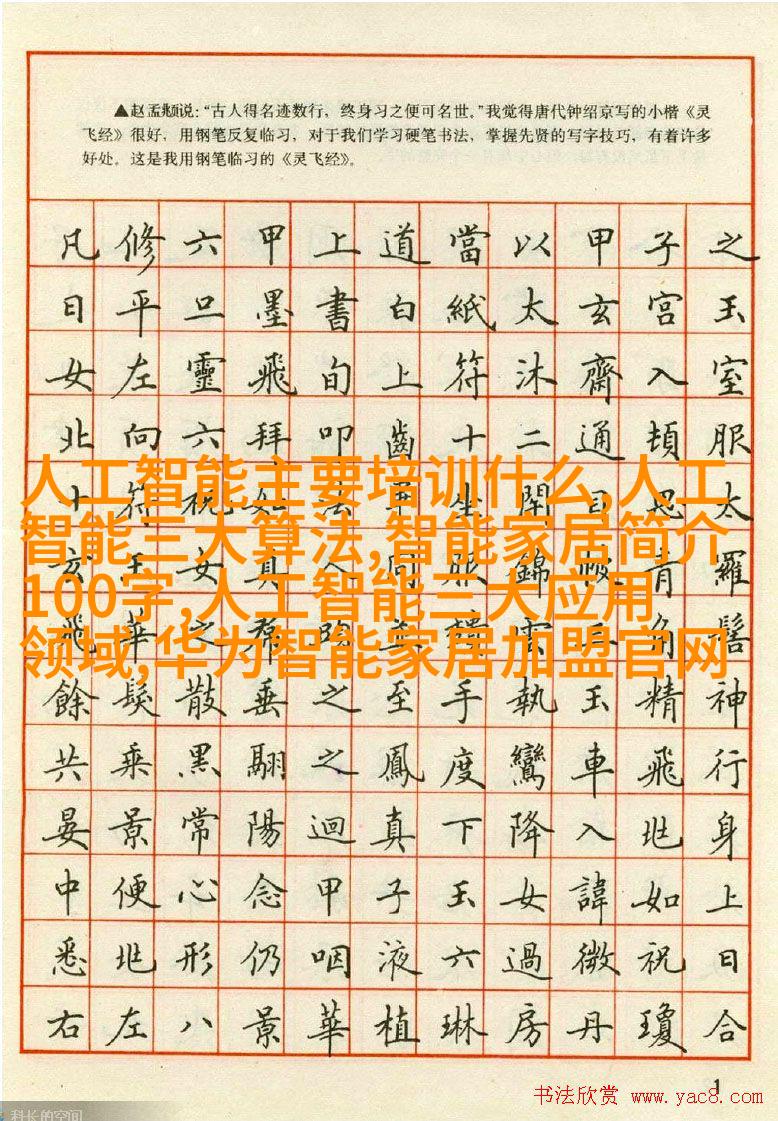 ▲赵孟頫说：“古人得名迹数行，终身习之便可名世。”我觉得唐代钟绍京写的小楷《灵
飞经》很好，用钢笔反复临习，对于我们学习硬笔书法，掌握先贤的写字技巧，有着许多
好处。这是我用钢笔临习的《灵飞经》。
凡修六甲上道當以甲子之
日平旦墨書白紙太玄宮玉
女左靈飛旬上符沐齋入室
北向六拜叩齒十二通頓服
十符祝如法畢坐閉目思太
玄玉女真人同服錦帔青羅
飛華之帬雲三角髻
餘髮散垂之至手執玉精神
共乘黑翮之鳳度鸞車飛行
晏景常陽迴真下降入兆身
中便心念甲子玉女諱如上
悉兆形仍咽液六過微祝日
右左八景華植琳房丹瓊合
人工智能主要培训什么,人工
智能三大算法,智能家居简介
100字,人工智能三大应用
领域,华为智能家居加盟官网
1
书法欣赏 www.yac8.com
科长的空间